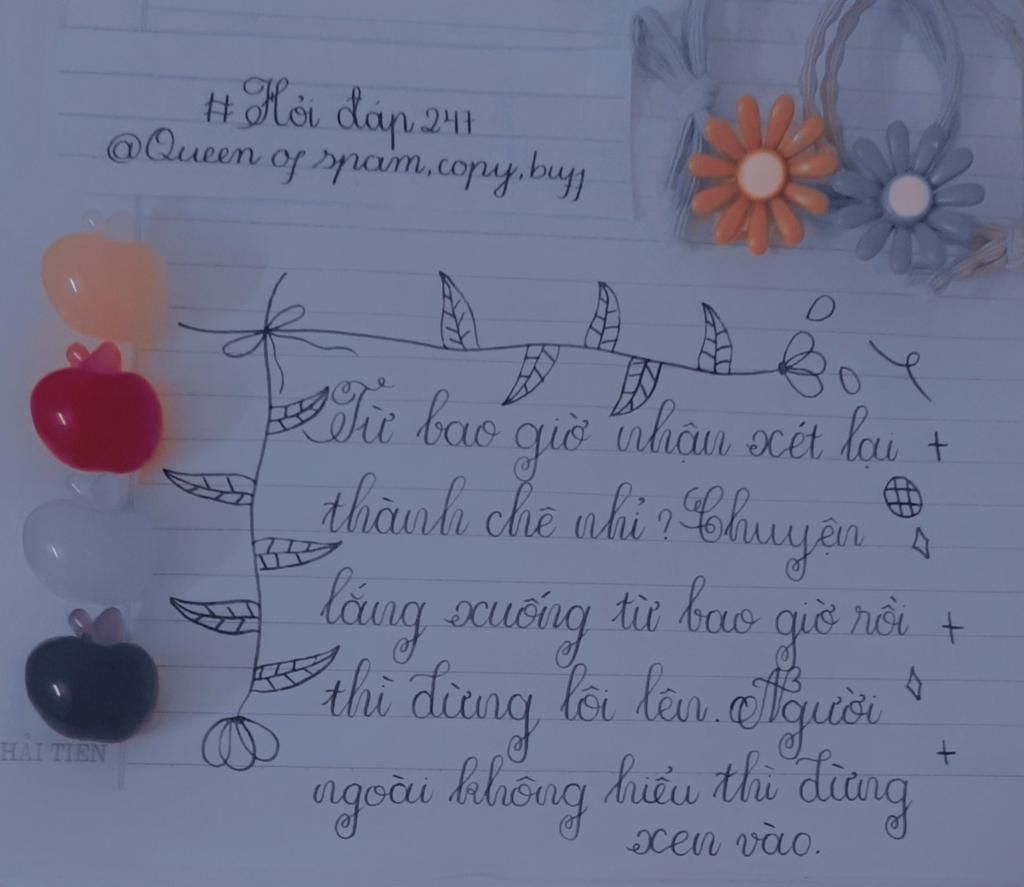 #Hỏi đáp 247
@Queen of spam, copy, buff
Từ bao giờ nhận xét lại
thành chê nhỉ? Chuyện
lắng xuống từ bao giờ rồi
thì đừng lôi lên. Người
ngoài không hiểu thì đừng
xen vào.
HẢI TIEN